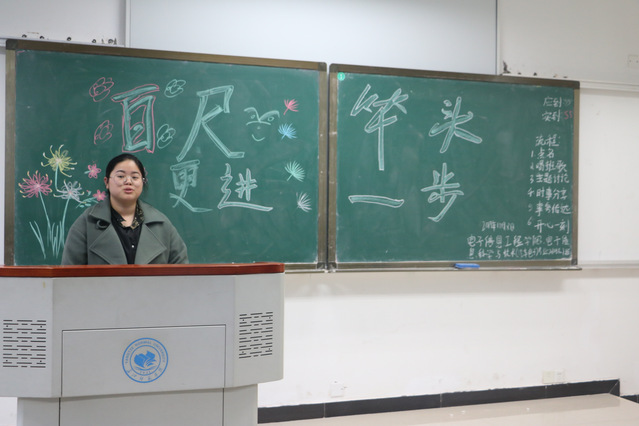 百尺 竿头
更进 一步
应到
实到
流程
1.点名
2.唱班歌
3.主题讨论
4.时事分享
5.事务传达
6.开心一刻
电子信息工程学院 电子信
息科学与技术